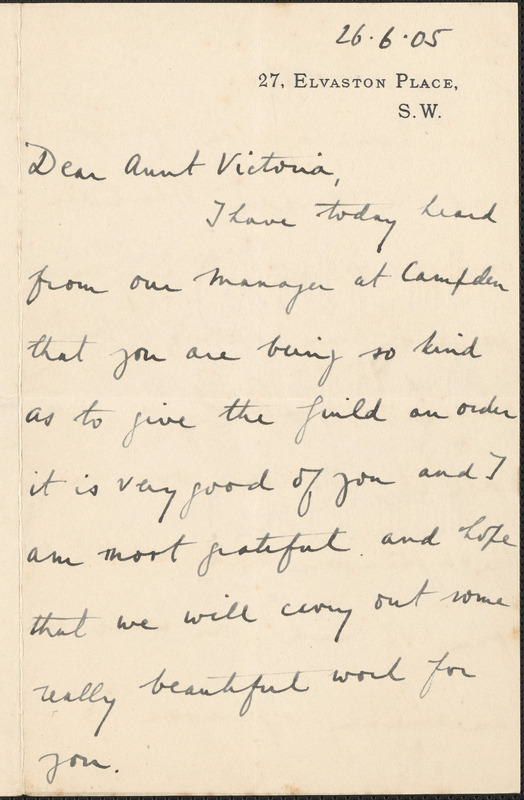 26.6.05
27, Elvaston Place,
S.W.
Dear Aunt Victoria,
I have today heard
from our manager at Campden
that you are being so kind
as to give the Guild an order
it is very good of you and I
am most grateful. and hope
that we will carry out some
really beautiful work for
you.